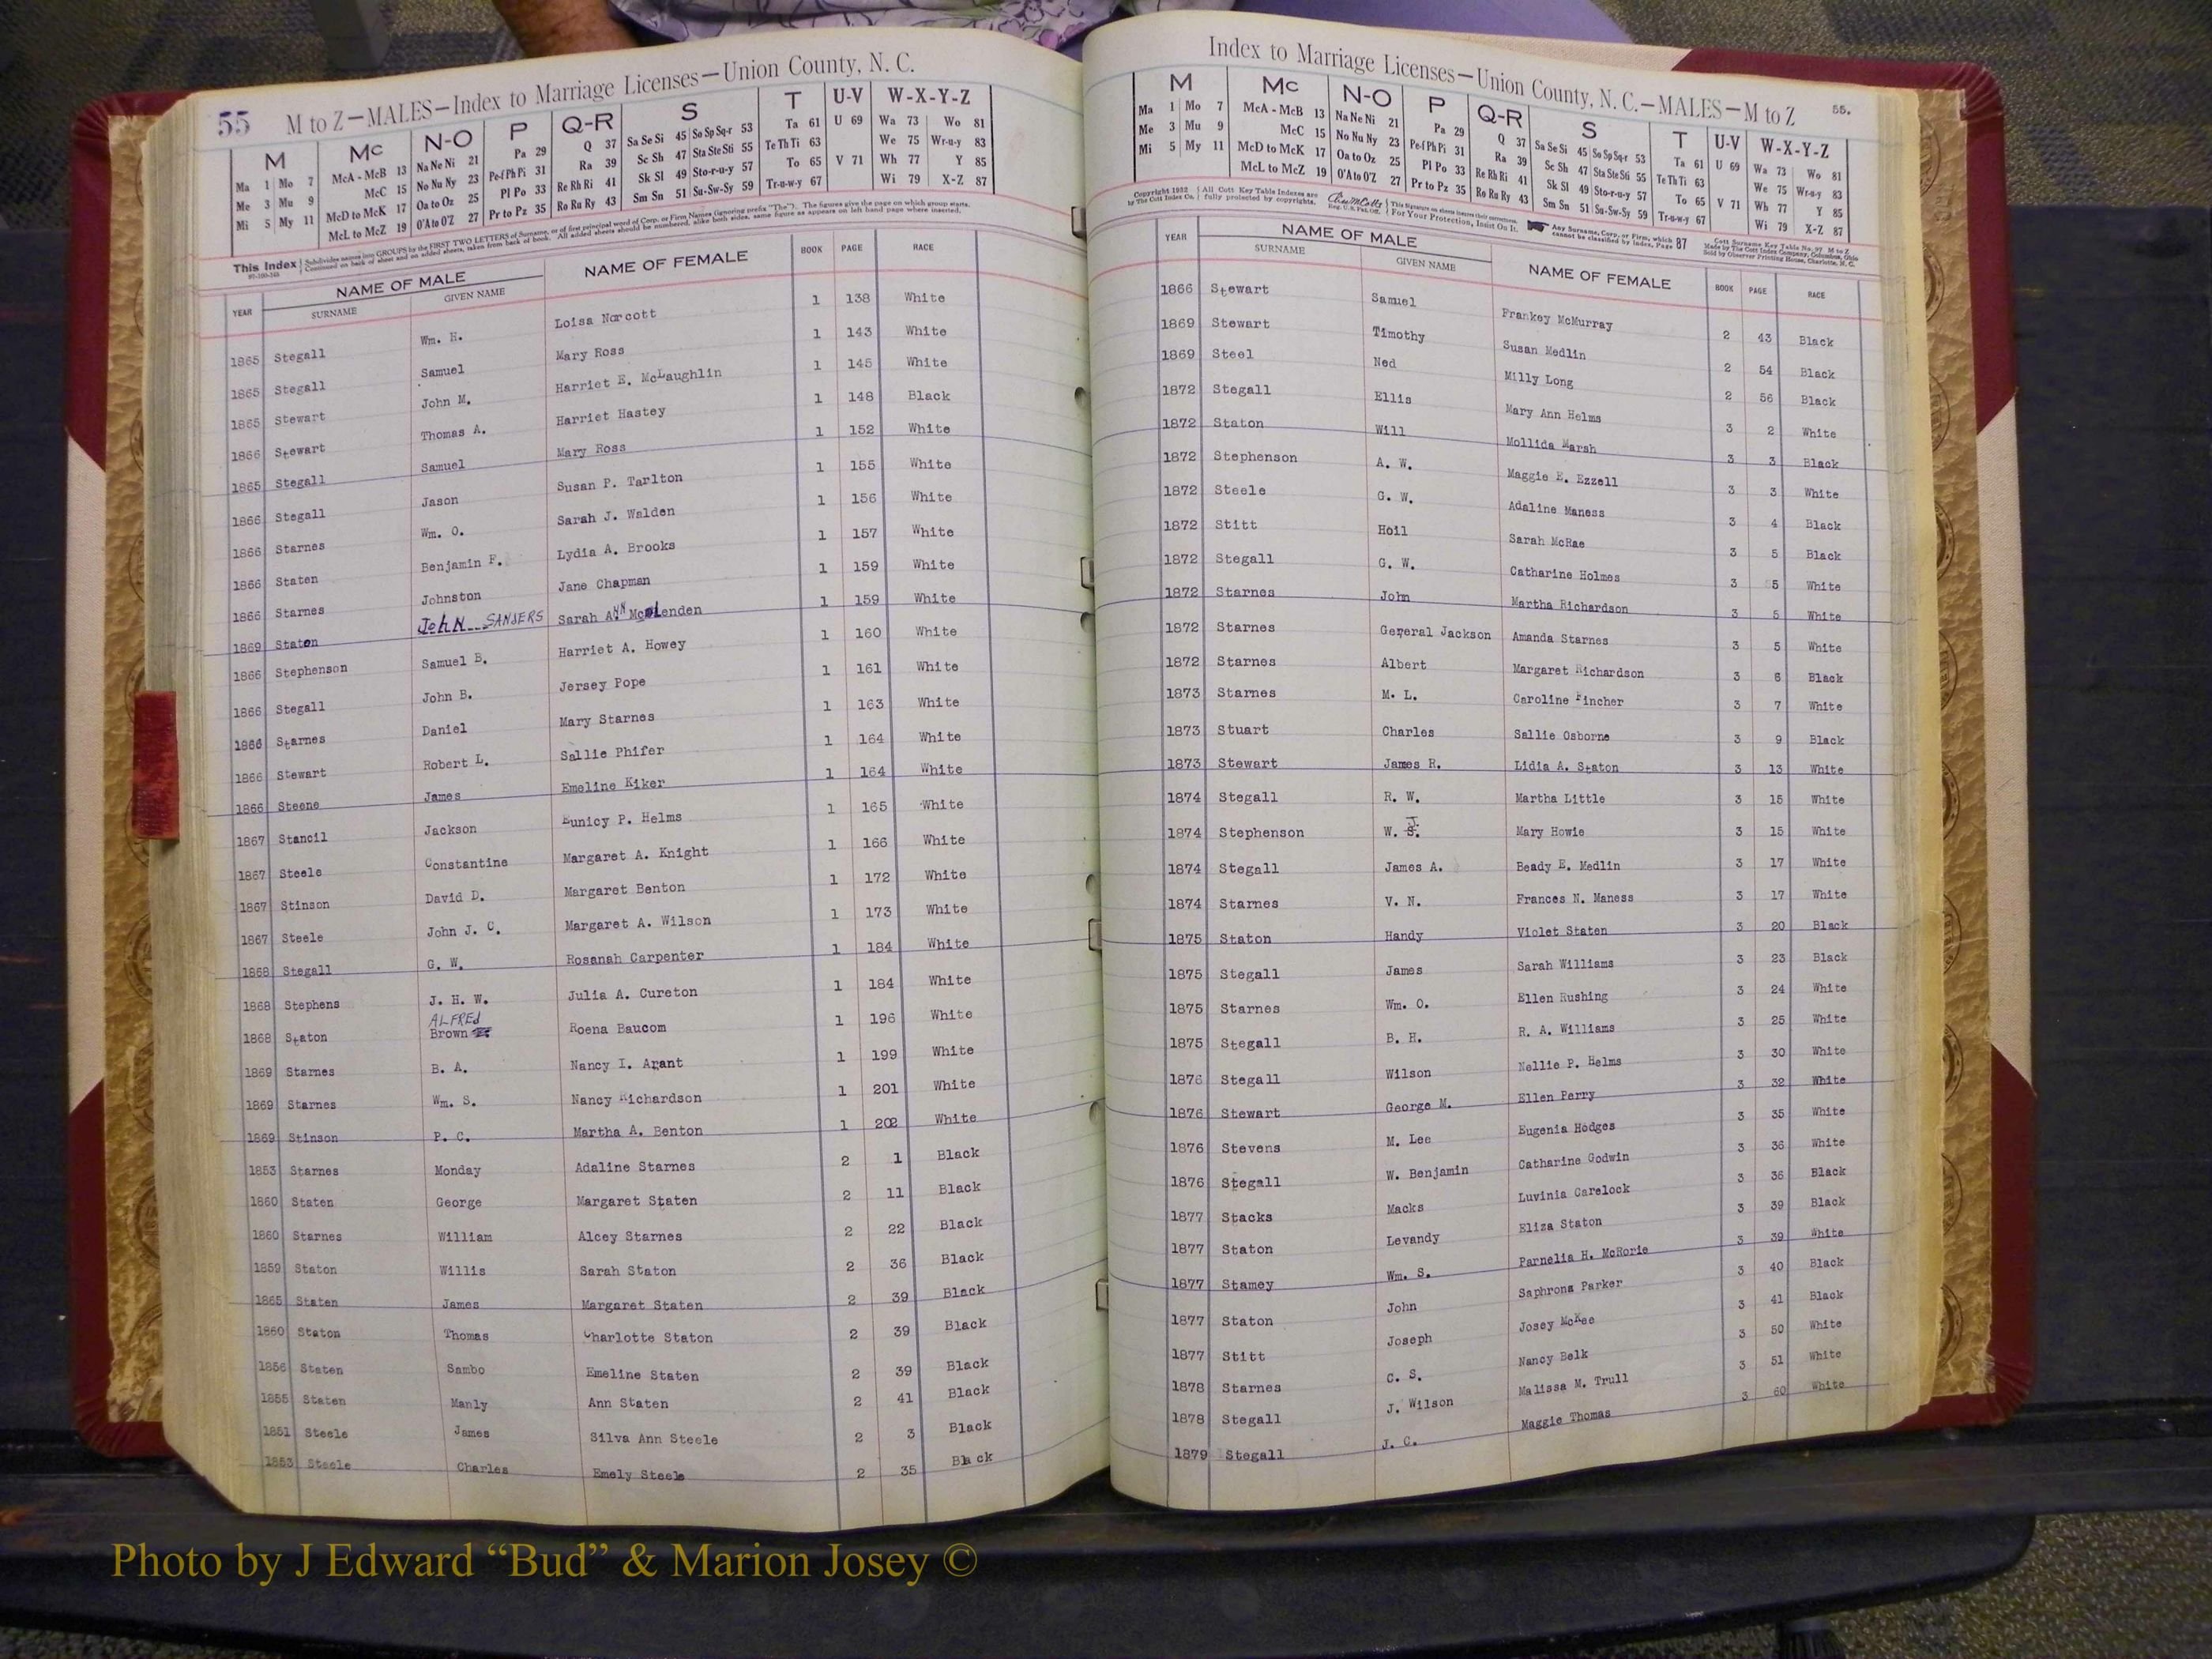 55 M to Z—MALES—Index to Marriage Licenses—Union County, N. C.
M Mc N-O P Q-R S T U-V W-X-Y-Z
Ma 1 Mo 7 McA - McB 13 Na Ne Ni 21 Pa 29 Q 37 Sa Se Si 45 So Sp Sq-r 53 Ta 61 U 69 Wa 73 Wo 81
Me 3 Mu 9 McC 15 No Nu Ny 23 Pe-f Ph Pi 31 Ra 39 Sc Sh 47 Sta Ste Sti 55 Te Th Ti 63 We 75 Wr-u-y 83
Mi 5 My 11 McD to McK 17 Oa to Oz 25 Pl Po 33 Re Rh Ri 41 Sk Sl 49 Sto-r-u-y 57 To 65 V 71 Wh 77 Y 85
McL to McZ 19 O'A to O'Z 27 Pr to Pz 35 Ro Ru Ry 43 Sm Sn 51 Su-Sw-Sy 59 Tr-u-w-y 67 Wi 79 X-Z 87
This Index Subdivides names into GROUPS by the FIRST TWO LETTERS of Surname, or of first principal word of Corp. or Firm Names (ignoring prefix "The"). The figures give the page on which group starts.
Continued on back of sheet and on added sheets, taken from back of book. All added sheets should be numbered, alike both sides, same figure as appears on left hand page where inserted.
YEAR NAME OF MALE NAME OF FEMALE BOOK PAGE RACE
SURNAME GIVEN NAME
1865 Stegall Wm. H. Loisa Norcott 1 138 White
1865 Stegall Samuel Mary Ross 1 143 White
1865 Stewart John M. Harriet E. McLaughlin 1 145 White
1866 Stewart Thomas A. Harriet Hastey 1 148 Black
1865 Stegall Samuel Mary Ross 1 152 White
1866 Stegall Jason Susan P. Tarlton 1 155 White
1866 Starnes Wm. O. Sarah J. Walden 1 156 White
1866 Staten Benjamin F. Lydia A. Brooks 1 157 White
1866 Starnes Johnston Jane Chapman 1 159 White
1869 Staton JOHN SANDERS Sarah ANN McLenden 1 159 White
1866 Stephenson Samuel B. Harriet A. Howey 1 160 White
1866 Stegall John B. Jersey Pope 1 161 White
1866 Starnes Daniel Mary Starnes 1 163 White
1866 Stewart Robert L. Sallie Phifer 1 164 White
1866 Steene James Emeline Kiker 1 164 White
1867 Stancil Jackson Eunicy P. Helms 1 165 White
1867 Steele Constantine Margaret A. Knight 1 166 White
1867 Stinson David D. Margaret Benton 1 172 White
1867 Steele John J. C. Margaret A. Wilson 1 173 White
1868 Stegall G. W. Rosanah Carpenter 1 184 White
1868 Stephens J. H. W. Julia A. Cureton 1 184 White
1868 Staton ALFRED Brown Roena Baucom 1 196 White
1869 Starnes B. A. Nancy I. Arant 1 199 White
1869 Starnes Wm. S. Nancy Richardson 1 201 White
1869 Stinson P. C. Martha A. Benton 1 202 White
1853 Starnes Monday Adaline Starnes 2 1 Black
1860 Staten George Margaret Staten 2 11 Black
1860 Starnes William Alcey Starnes 2 22 Black
1859 Staton Willis Sarah Staton 2 36 Black
1865 Staten James Margaret Staten 2 39 Black
1860 Staton Thomas Charlotte Staton 2 39 Black
1856 Staten Sambo Emeline Staten 2 39 Black
1855 Staten Manly Ann Staten 2 41 Black
1851 Steele James Silva Ann Steele 2 3 Black
1853 Steele Charles Emely Steele 2 35 Black
Index to Marriage Licenses—Union County, N. C.—MALES—M to Z 55.
M Mc N-O P Q-R S T U-V W-X-Y-Z
Ma 1 Mo 7 McA - McB 13 Na Ne Ni 21 Pa 29 Q 37 Sa Se Si 45 So Sp Sq-r 53 Ta 61 U 69 Wa 73 Wo 81
Me 3 Mu 9 McC 15 No Nu Ny 23 Pe-f Ph Pi 31 Ra 39 Sc Sh 47 Sta Ste Sti 55 Te Th Ti 63 We 75 Wr-u-y 83
Mi 5 My 11 McD to McK 17 Oa to Oz 25 Pl Po 33 Re Rh Ri 41 Sk Sl 49 Sto-r-u-y 57 To 65 V 71 Wh 77 Y 85
McL to McZ 19 O'A to O'Z 27 Pr to Pz 35 Ro Ru Ry 43 Sm Sn 51 Su-Sw-Sy 59 Tr-u-w-y 67 Wi 79 X-Z 87
Copyright 1932 by The Cott Index Co. All Cott Key Table Indexes are fully protected by copyrights. Reg. U.S. Pat. Off. This Signature on sheets insures their correctness. For Your Protection, Insist On It. Any Surname, Corp. or Firm, which cannot be classified by Index, Page 87
Cott Surname Key Table No. 97 M to Z
Made by The Cott Index Company, Columbus, Ohio
Sold by Observer Printing House, Charlotte, N. C.
YEAR NAME OF MALE NAME OF FEMALE BOOK PAGE RACE
SURNAME GIVEN NAME
1866 Stewart Samuel Frankey McMurray 2 43 Black
1869 Stewart Timothy Susan Medlin 2 54 Black
1869 Steel Ned Milly Long 2 56 Black
1872 Stegall Ellis Mary Ann Helms 3 2 White
1872 Staton Will Mollida Marsh 3 3 Black
1872 Stephenson A. W. Maggie E. Ezzell 3 3 White
1872 Steele G. W. Adaline Maness 3 4 Black
1872 Stitt Hoil Sarah McRae 3 5 Black
1872 Stegall G. W. Catharine Holmes 3 5 White
1872 Starnes John Martha Richardson 3 5 White
1872 Starnes General Jackson Amanda Starnes 3 5 White
1872 Starnes Albert Margaret Richardson 3 6 Black
1873 Starnes M. L. Caroline Fincher 3 7 White
1873 Stuart Charles Sallie Osborne 3 9 Black
1873 Stewart James R. Lidia A. Staton 3 13 White
1874 Stegall R. W. Martha Little 3 15 White
1874 Stephenson W. J. S. Mary Howie 3 15 White
1874 Stegall James A. Beady E. Medlin 3 17 White
1874 Starnes V. N. Frances N. Maness 3 17 White
1875 Staton Handy Violet Staten 3 20 Black
1875 Stegall James Sarah Williams 3 23 Black
1875 Starnes Wm. O. Ellen Rushing 3 24 White
1875 Stegall B. H. R. A. Williams 3 25 White
1876 Stegall Wilson Nellie P. Helms 3 30 White
1876 Stewart George M. Ellen Perry 3 32 White
1876 Stevens M. Lee Eugenia Hodges 3 35 White
1876 Stegall W. Benjamin Catharine Godwin 3 36 White
1877 Stacks Macks Luvinia Carelock 3 36 Black
1877 Staton Levandy Eliza Staton 3 39 Black
1877 Stamey Wm. S. Parnelia H. McRorie 3 39 White
1877 Staton John Saphrona Parker 3 40 Black
1877 Stitt Joseph Josey McKee 3 41 Black
1878 Starnes C. S. Nancy Belk 3 50 White
1878 Stegall J. Wilson Malissa M. Trull 3 51 White
1879 Stegall J. C. Maggie Thomas 3 60 White
Photo by J Edward “Bud” & Marion Josey ©